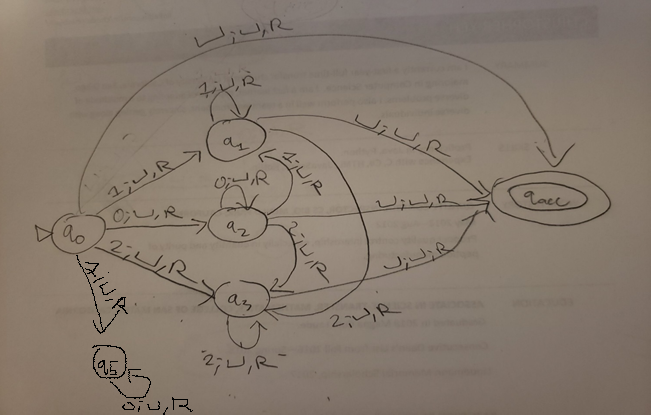 ⊔;⊔,R
1;⊔,R
q1
⊔;⊔,R
1;⊔,R
0;⊔,R
1;⊔,R
qacc
q0
0;⊔,R
q2
⊔;⊔,R
2;⊔,R
2;⊔,R
⊔;⊔;R
q3
1;⊔,R
2;⊔,R
2;⊔,R
q5
0;⊔,R